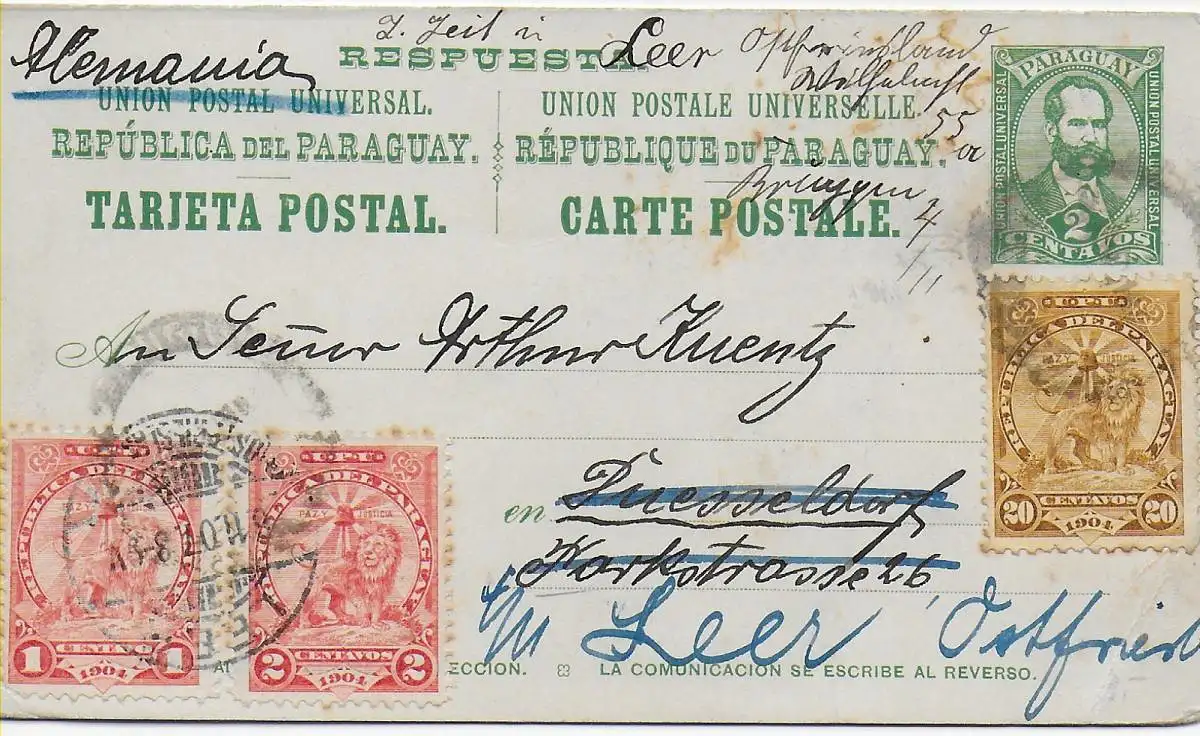 Alemania
z. Zeit in
RESPUESTA.
Leer Ostfriesland
Wilhelmstr
55
Brüggen
4/11
UNION POSTAL UNIVERSAL.
REPÚBLICA DEL PARAGUAY.
TARJETA POSTAL.
UNION POSTALE UNIVERSELLE.
RÉPUBLIQUE DU PARAGUAY.
CARTE POSTALE.
PARAGUAY
UNION POSTAL UNIVERSAL
UNION POSTAL UNIVERSAL
2
CENTAVOS
An Señor Arthur Kuentz
en Duesseldorf
Parkstrasse 26
Leer Ostfriesl
U.P.U.
REPUBLICA DEL PARAGUAY
PAZ Y JUSTICIA
20 CENTAVOS 20
1904
U.P.U.
REPUBLICA DEL PARAGUAY
1 CENTAVO 1
1904
U.P.U.
REPUBLICA DEL PARAGUAY
PAZ Y JUSTICIA
2 CENTAVOS 2
1904
ECCION.
LA COMUNICACION SE ESCRIBE AL REVERSO.